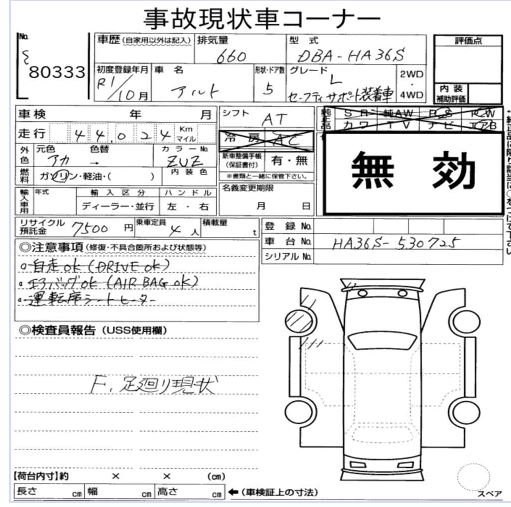 事故現状車コーナー
No.
80333
車歴 (自家用以外は記入) 排気量 660 型式 DBA-HA36S
評価点
初度登録年月 R1/10月 車名 アルト 形状・ドア数 5 グレード L セーフティサポート装着車 2WD・4WD
内装補助評価
車検 年 月 シフト AT
走行 44,024 Km マイル
冷房 AC
純正装備品 SR 純AW PS PW カワ TV ナビ エアB
無効
外色 元色 アカ 色替 → カラーNo. ZUZ
新車整備手帳(保証書付) 有・無
※書類と一緒に保管下さい。
燃料 ガソリン・軽油・( ) 内装色
輸入車用 年式 輸入区分 ディーラー・並行 ハンドル 左・右
名義変更期限 月 日
リサイクル預託金 7500円 乗車定員 4人 積載量 t
登録No.
車台No. HA36S-530725
シリアルNo.
◎注意事項 (修復・不具合箇所および状態等)
自走OK (DRIVE OK)
エアバッグOK (AIR BAG OK)
運転席シートヒーター
◎検査員報告 (USS使用欄)
F、足廻り現状
【荷台内寸】約 × × (cm)
長さ cm 幅 cm 高さ cm ←(車検証上の寸法)
スペア